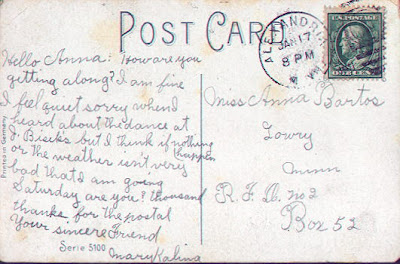 POST CARD
ALEXANDRIA
JAN 17
8 PM
U.S. POSTAGE
Hello Anna: How are you
getting along? I am fine
I feel quiet sorry when I
heard about the dance at
J. Bisek's but I think if nothing
happen
or the weather isn't very
bad that I am going
Saturday are you? thousand
thanks for the postal
Your sincere Friend
Mary Kalina
Miss Anna Bartos
Lowry
Minn
R. F. D. no 2
Box 52
Printed in Germany
Serie 5100